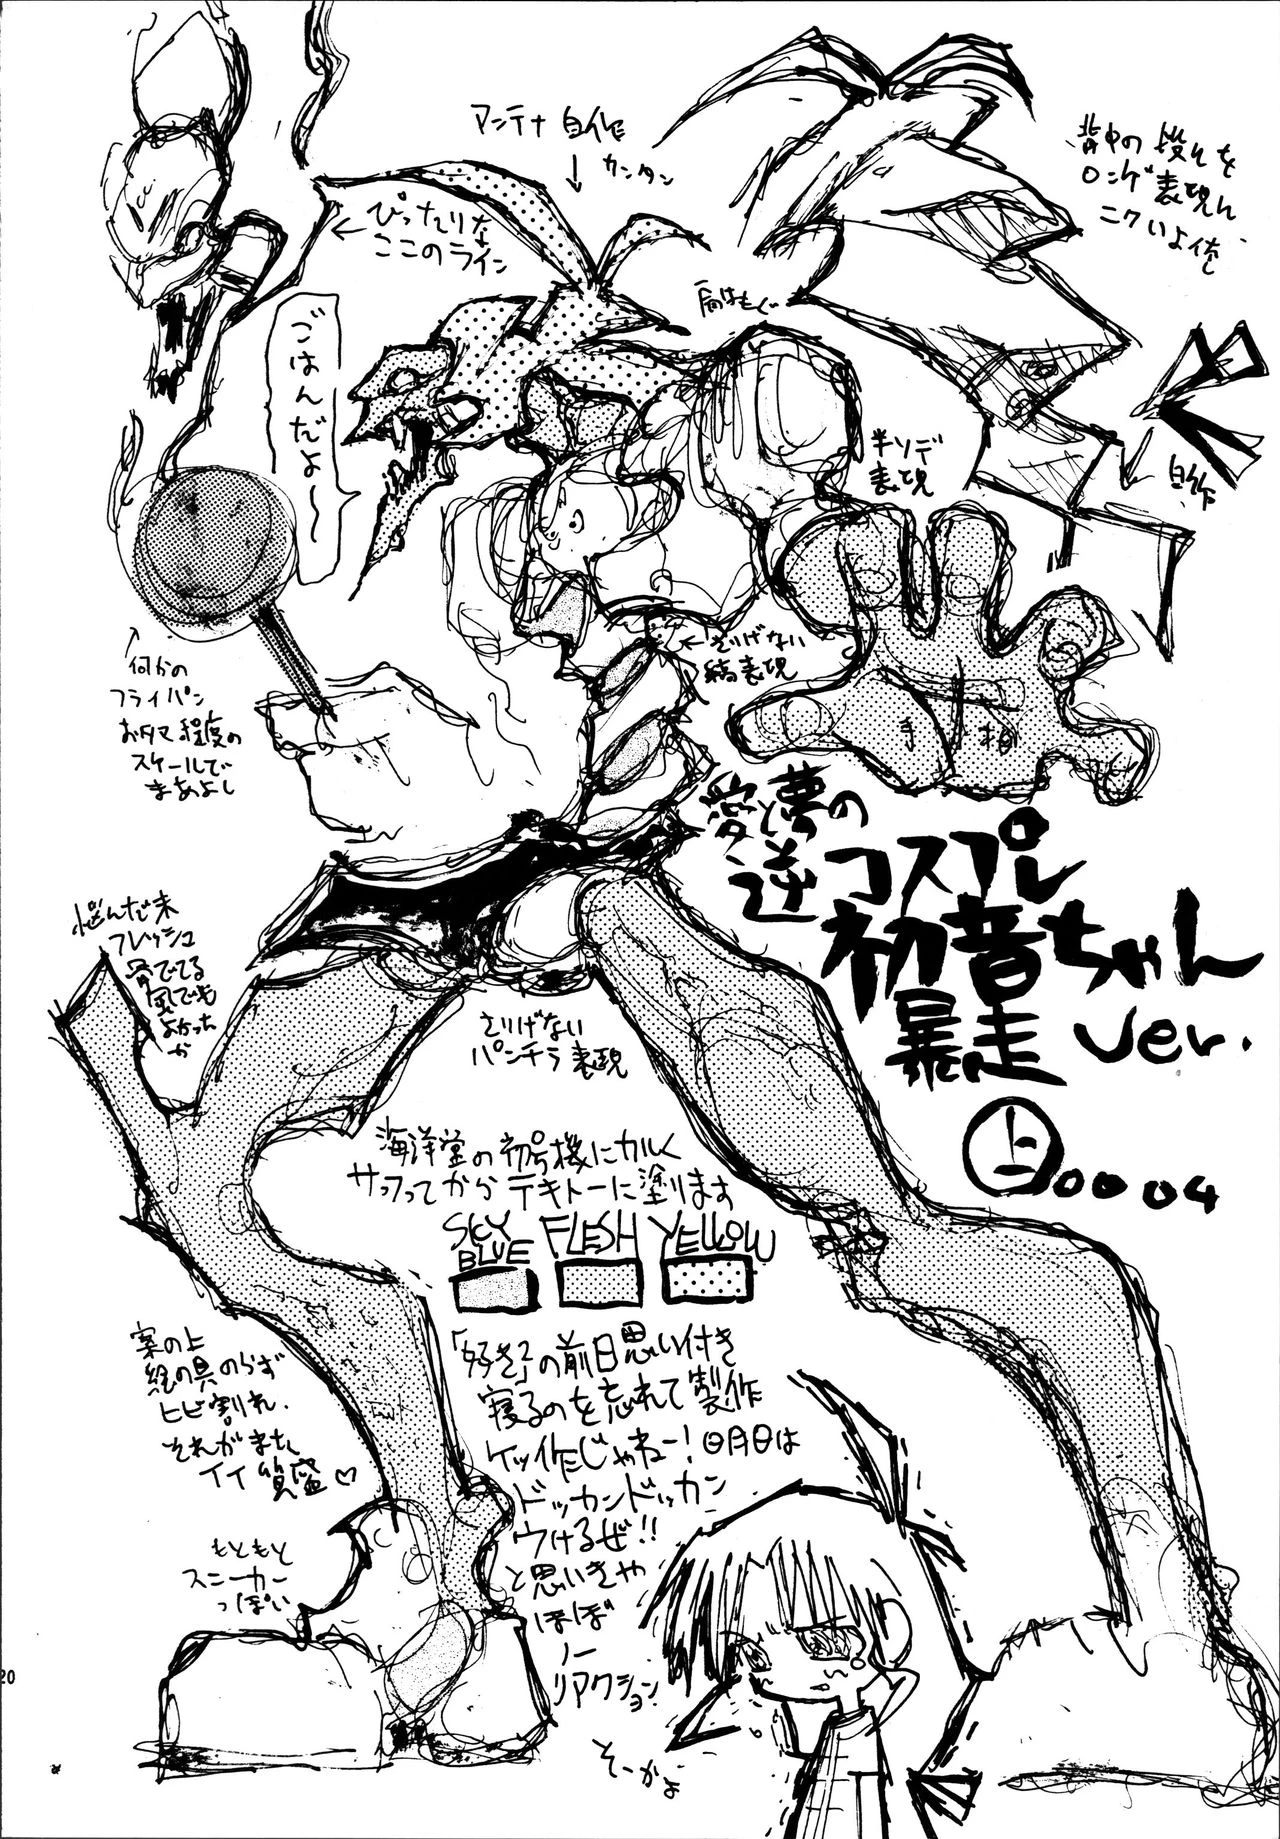 アンテナ自作
カンタン
ぴったりな
ここのライン
背中の
ロンゲ表現
ごはんだよ〜
半ソデ
表現
自作
さりげない
縞表現
何かの
フライパン
お夕マ程度の
スケールで
まあよし
手相
愛と夢の
逆コスプレ
初音ちゃん
暴走 ver.
上 0004
悩んだ末
フレッシュ
骨でてる
風でも
よかった
か
さりげない
パンチラ表現
海洋堂の初号機にカルく
サフってからテキトーに塗ります
SKY BLUE
FLESH
YELLOW
案の上
絵の具のらず
ヒビ割れ.
それがまた
イイ質感♡
「好き」の前日思い付き
寝るのを忘れて製作
ケッ作じゃねー!明日は
ドッカンドッカン
ウけるぜ!!
と思いきや
ほぼ
ノー
リアクション
もともと
スニーカー
っぽい
そーかよ
20